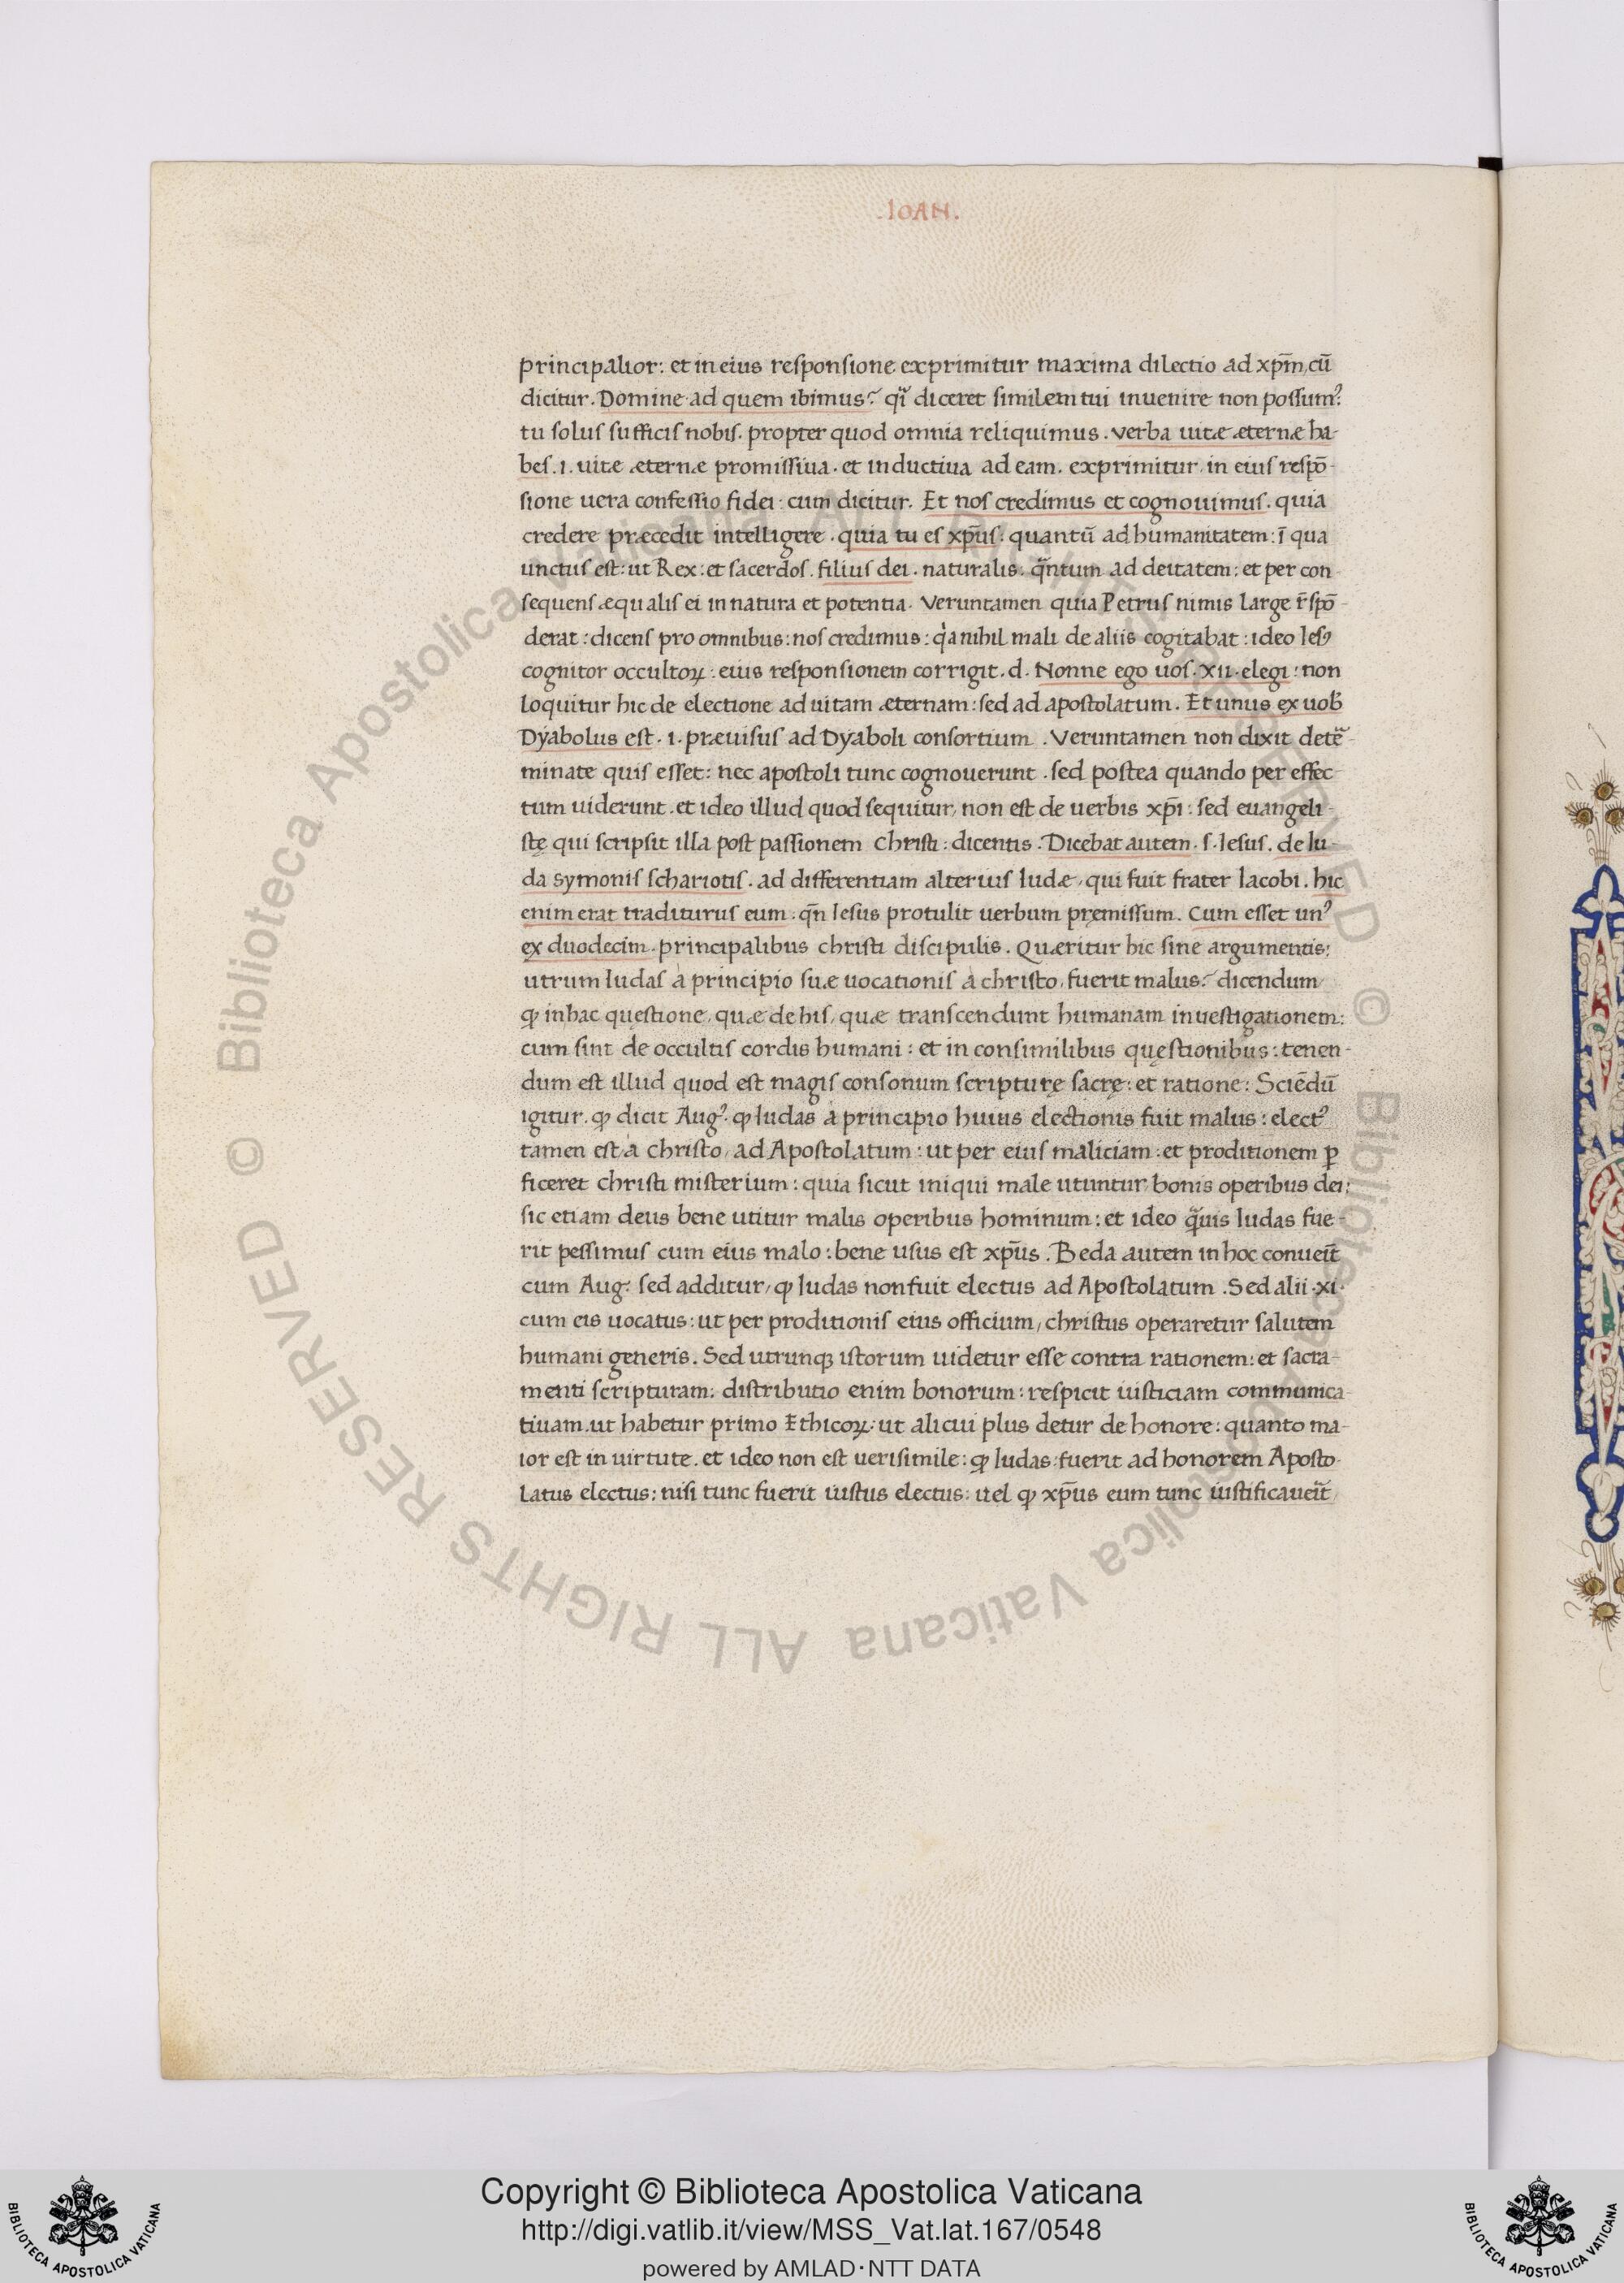 .IOAN.
principalior: et in eius responsione exprimitur maxima dilectio ad xp̄m, cū
dicitur. Domine ad quem ibimus? qͣi diceret similem tui inuenire non possumꝰ:
tu solus sufficis nobis. propter quod omnia reliquimus. verba uitæ æternæ ha-
bes. i. uitæ æternæ promissiua. et inductiua ad eam. exprimitur in eius respō-
sione uera confessio fidei: cum dicitur. Et nos credimus et cognouimus. quia
credere præcedit intelligere. quia tu es xp̄us. quantū ad humanitatem: ī qua
unctus est: ut Rex: et sacerdos. filius dei. naturalis. qͣntum ad deitatem: et per con-
sequens æqualis ei in natura et potentia. Veruntamen quia Petrus nimis large r̄spō-
derat: dicens pro omnibus: nos credimus: qͥa nihil mali de aliis cogitabat: ideo Iesꝰ
cognitor occultoꝝ: eius responsionem corrigit. d. Nonne ego uos. xii. elegi: non
loquitur hic de electione ad uitam æternam: sed ad apostolatum. Et unus ex uob̄
Dyabolus est. i. præuisus ad Dyaboli consortium. Veruntamen non dixit detē-
minate quis esset: nec apostoli tunc cognouerunt. sed postea quando per effec-
tum uiderunt. et ideo illud quod sequitur, non est de uerbis xp̄i: sed euangeli-
stę qui scripsit illa post passionem Christi: dicentis. Dicebat autem. s. Iesus. de Iu-
da symonis schariotis. ad differentiam alterius Iudæ, qui fuit frater Iacobi. hic
enim erat traditurus eum. qn̄ Iesus protulit uerbum pręmissum. Cum esset unꝰ
ex duodecim. principalibus christi discipulis. Quæritur hic sine argumentis:
utrum Iudas à principio suæ uocationis à christo, fuerit malus? dicendum
ꝙ in hac quęstione, quæ de his, quæ transcendunt humanam inuestigationem:
cum sint de occultis cordis humani: et in consimilibus quęstionibus: tenen-
dum est illud quod est magis consonum scripturę sacrę: et ratione: Sciēdū
igitur. ꝙ dicit Augꝰ. ꝙ Iudas à principio huius electionis fuit malus: electꝰ
tamen est, à christo, ad Apostolatum: ut per eius maliciam: et proditionem ꝑ
ficeret christi misterium: quia sicut iniqui male utuntur bonis operibus dei:
sic etiam deus bene utitur malis operibus hominum: et ideo qͣuis Iudas fue-
rit pessimus cum eius malo: bene usus est xp̄us. Beda autem in hoc conueīt
cum Augꝰ. sed additur, ꝙ Iudas non fuit electus ad Apostolatum. Sed alii. xi.
cum eis uocatus: ut per proditionis eius officium, christus operaretur salutem
humani generis. Sed utrunqꝫ istorum uidetur esse contra rationem: et sacra-
menti scripturam: distributio enim bonorum: respicit iusticiam communica-
tiuam. ut habetur primo Ethicoꝝ: ut alicui plus detur de honore: quanto ma-
ior est in uirtute. et ideo non est uerisimile: ꝙ Iudas: fuerit ad honorem Aposto-
latus electus: nisi tunc fuerit iustus electus: uel ꝙ xp̄us eum tunc iustificaueīt,
© Biblioteca Apostolica Vaticana ALL RIGHTS RESERVED
© Biblioteca Apostolica Vaticana ALL RIGHTS RESERVED
Copyright © Biblioteca Apostolica Vaticana
http://digi.vatlib.it/view/MSS_Vat.lat.167/0548
powered by AMLAD·NTT DATA
BIBLIOTECA APOSTOLICA VATICANA
BIBLIOTECA APOSTOLICA VATICANA